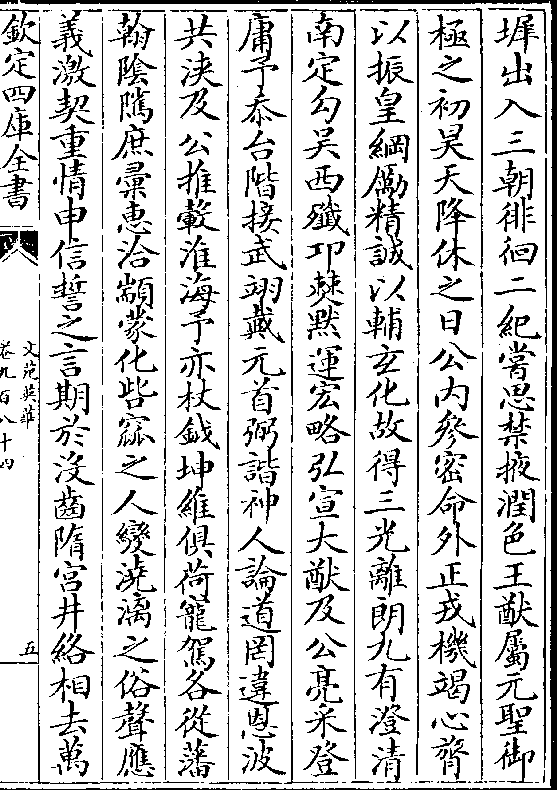 墀出入三朝徘徊二紀嘗思禁掖潤色王猷屬元聖御
極之初昊天降休之日公内參密命外正戎機竭心膂
以振皇綱勵精誠以輔玄化故得三光離朗九有澄清
南定勾吴西殲卭僰黙運宏略弘宣大猷及公亮采登
庸予忝台階接武翊戴元首弼諧神人論道罔違恩波
共浹及公推轂淮海予亦杖鉞坤維俱荷寵駕各從藩
翰陰隲庶彚惠洽顓蒙化呰窳之人變澆漓之俗聲應
義激契重情申信誓之言期於没齒隋宫井絡相去萬
欽定四庫全書
文苑英華
卷九百八十四
五